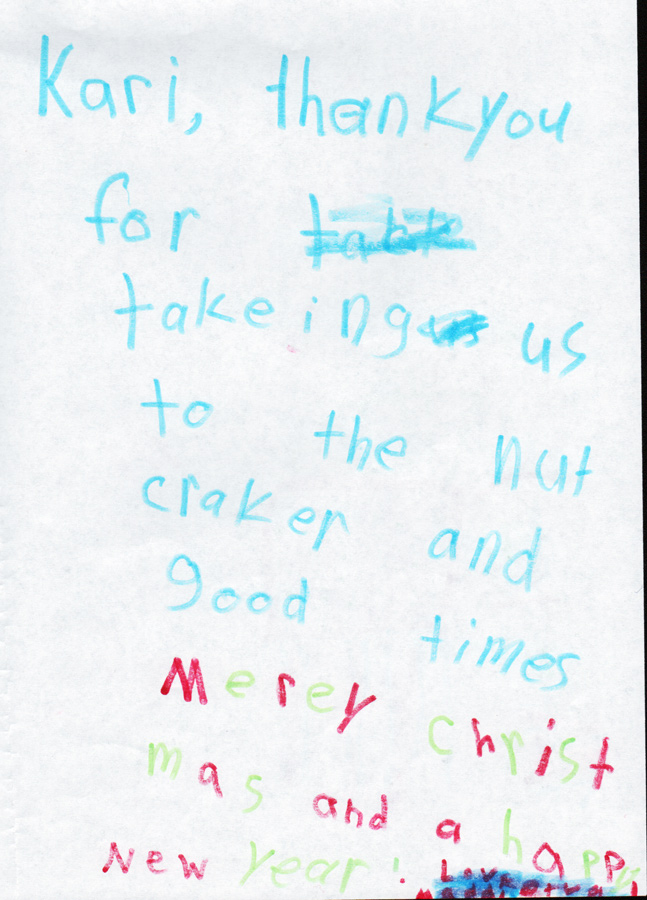 Kari, thankyou
for
takeing us
to the nut
craker and
good times
Merey Christ
mas and a happy
New year! Love